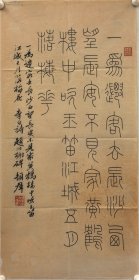 一為遷客去長沙西
望長安不見家黃鶴
樓中吹玉笛江城五月
落梅花
一為遷客去長沙西望長安不見家黃鶴樓中吹玉笛
江城五月落梅花李白詩